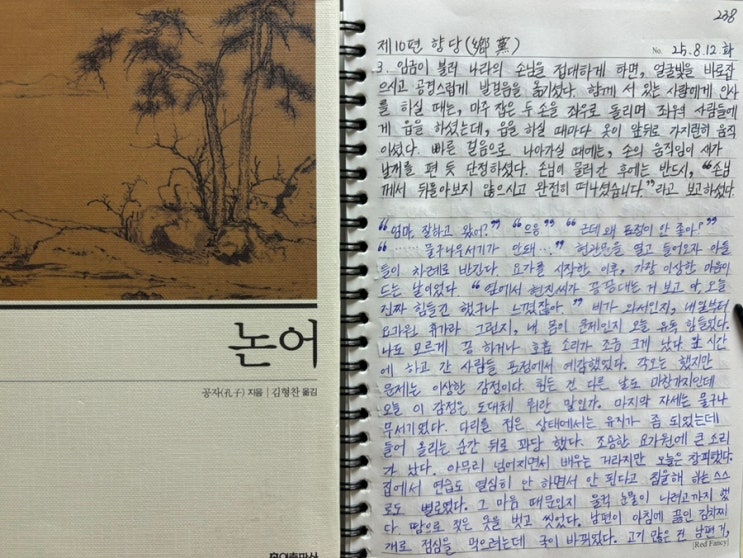 논어
공자(孔子) 지음 | 김형찬 옮김
238
제10편 향당(鄕黨)
No. 25. 8. 12 화
3. 임금이 불러 나라의 손님을 접대하게 하면, 얼굴빛을 바로잡
으시고 공경스럽게 발걸음을 옮기셨다. 함께 서 있는 사람에게 인사
를 하실 때는, 마주 잡은 두 손을 좌우로 돌리며 좌우의 사람들에
게 읍을 하셨는데, 읍을 하실 때마다 옷이 앞뒤로 가지런히 움직
이셨다. 빠른 걸음으로 나아가실 때에는, 손의 움직임이 새가
날개를 편 듯 단정하셨다. 손님이 물러간 후에는 반드시, "손님
께서 뒤돌아보지 않으시고 완전히 떠나셨습니다."라고 보고하셨다.
"엄마, 잘하고 왔어?" "으응" "근데 왜 표정이 안 좋아?"
"…… 물구나무서기가 안돼…." 현관문을 열고 들어오자 아들
들이 차례로 반긴다. 요가를 시작한 이후, 가장 이상한 마음이
드는 날이었다. "옆에서 현진씨가 끙끙대는 거 보고 아, 오늘
진짜 힘들긴 했구나 느꼈잖아." 비가 와서인지, 내일부터
요가원 휴가라 그런지, 내 몸이 문제인지 오늘 유독 힘들었다.
나도 모르게 끙 하거나 호흡 소리가 조금 크게 났다. 앞 시간
에 하고 간 사람들 표정에서 예감했었다. 각오는 했지만
문제는 이상한 감정이다. 힘든 건 다른 날도 마찬가지인데
오늘 이 감정은 도대체 뭐란 말인가. 마지막 자세는 물구나
무서기였다. 다리를 접은 상태에서는 유지가 좀 되었는데
들어 올리는 순간 뒤로 꽈당 했다. 조용한 요가원에 큰 소리
가 났다. 아무리 넘어지면서 배우는 거라지만 오늘은 창피했다.
집에서 연습도 열심히 안 하면서 안 된다고 침울해 하는 스스
로도 별로였다. 그 마음 때문인지 울컥 눈물이 나려고까지 했
다. 땀으로 젖은 옷을 벗고 씻었다. 남편이 아침에 끓인 김치찌
개로 점심을 먹으려는데 국이 바뀌었다. 고기 많은 건 남편 거,
[Red Fancy]